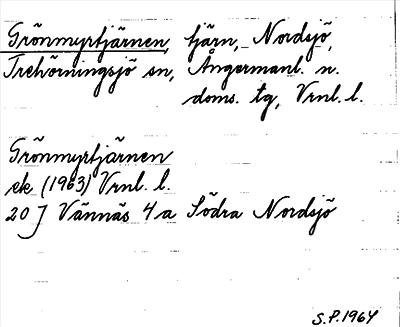 Grönmyrtjärnen, tjärn, Nordsjö,
Trehörningsjö sn, Ångermanl. n.
doms. tg, Vrnl. l.
Grönmyrtjärnen
ek (1963) Vrnl. l.
20 J Vännäs 4a Södra Nordsjö
S.P. 1964